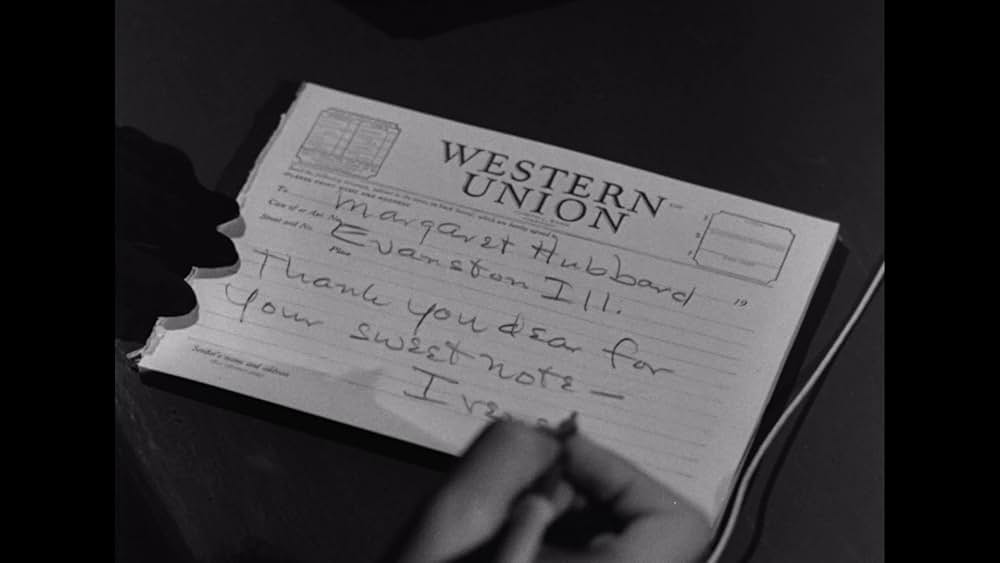 WESTERN
UNION
To
Margaret Hubbard
Care of or Apt. No.
Street and No.
Evanston Ill.
Place
19
Thank you dear for
your sweet note —
Irene
Sender's name and address